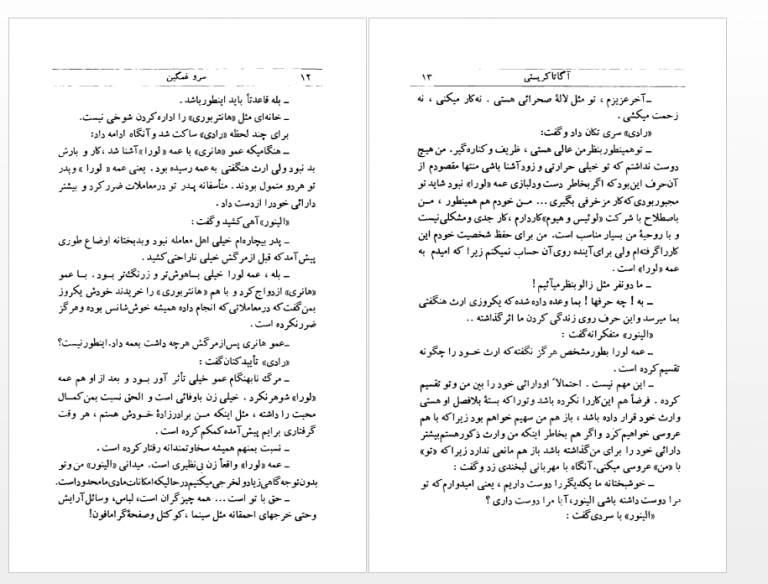 سرو غمگین ۱۲
ـ بله قاعدتاً باید اینطورباشد .
ـ خانه‌ای مثل «هانتربوری» را اداره‌کردن شوخی نیست.
برای چند لحظه «رادی» ساکت شد و آنگاه ادامه داد:
ـ هنگامیکه عمو «هانری» با عمه «لورا» آشنا شد ،کار و بارش
بد نبود ولی ارث هنگفتی به‌عمه رسیده بود . یعنی عمه «لورا » و پدر
تو هردو متمول بودند. متأسفانه پدر تو درمعاملات ضرر کرد و بیشتر
دارائی خودرا از دست داد .
«الینور» آهی کشید و گفت :
ـ پدر بیچاره‌ام خیلی اهل معامله نبود و بدبختانه اوضاع طوری
پیش آمد که قبل از مرگش خیلی ناراحتی کشید .
ـ بله ، عمه لورا خیلی باهوش‌تر و زرنگ‌تر بود. با عمو
«هانری» ازدواج کرد و با هم «هانتربوری» را خریدند خودش یکروز
بمن‌گفت که درمعاملاتی که انجام داده همیشه خوش‌شانس بوده و هرگز
ضرر نکرده است .
ـ عمو هانری پس‌از مرگش هرچه داشت بعمه داد. اینطور نیست؟
«رادی» تأییدکنان گفت :
ـ مرگ نابهنگام عمو خیلی تأثر آور بود و بعد از او هم عمه
«لورا» شوهر نکرد . خیلی زن باوفائی است و الحق نسبت بمن کمال
محبت را داشته ، مثل اینکه من برادرزادهٔ خودش هستم ، هر وقت
گرفتاری برایم پیش‌آمده کمکم کرده است .
ـ نسبت بمنهم همیشه سخاوتمندانه رفتار کرده است .
ـ عمه «لورا» واقعاً زن بی‌نظیری است. میدانی «الینور» من و تو
بدون توجه‌گاهی زیاد ولخرجی میکنیم درحالیکه امکانات مادی ما محدود است.
ـ حق با تو است... همه چیز گران است، لباس، وسائل آرایش
وحتی خرجهای احمقانه مثل سینما ، کوکتل و صفحهٔ گرامافون!
آگاتا کریستی ۱۳
ـ آخر عزیزم ، تو مثل لالهٔ صحرائی هستی . نه‌کار میکنی ، نه
زحمت میکشی .
«رادی» سری تکان داد و گفت:
ـ تو همینطور بنظر من عالی هستی ، ظریف و کناره‌گیر. من هیچ
دوست نداشتم که تو خیلی حرارتی و زودآشنا باشی منتها مقصودم از
آن‌حرف این‌بود که اگر بخاطر دست و دلبازی عمه «لورا» نبود شاید تو
مجبور بودی که کار مزخرفی بگیری ... من خودم هم همینطور ، من
باصطلاح با شرکت «لوئیس و هیوم» کار دارم ، کار جدی و مشکلی نیست
و با روحیهٔ من بسیار مناسب است. من برای حفظ شخصیت خودم این
کار را گرفته‌ام ولی برای آینده روی آن حساب نمیکنم زیرا که امیدم به
عمه «لورا» است .
ـ ما دو نفر مثل زالو بنظر میآئیم !
ـ به ! چه حرفها ! بما وعده داده شده که یکروزی ارث هنگفتی
بما میرسد و این حرف روی زندگی کردن ما اثر گذاشته ..
«الینور» متفکرانه گفت :
ـ عمه لورا بطور مشخص هرگز نگفته که ارث خود را چگونه
تقسیم کرده است .
ـ این مهم نیست . احتمالاً او دارائی خود را بین من و تو تقسیم
کرده . فرضاً هم این‌کار را نکرده باشد و تو را که بستهٔ بلافصل او هستی
وارث خود قرار داده باشد ، باز هم من سهیم خواهم بود زیرا که با هم
عروسی خواهیم کرد و اگر هم بخاطر اینکه من وارث ذکور هستم بیشتر
دارائی خود را برای من گذاشته باشد باز هم مانعی ندارد زیرا که «تو»
با «من» عروسی میکنی. آنگاه با مهربانی لبخندی زد و گفت :
ـ خوشبختانه ما یکدیگر را دوست داریم ، یعنی امیدوارم که تو
مرا دوست داشته باشی الینور، آیا مرا دوست داری ؟
«الینور» با سردی گفت :